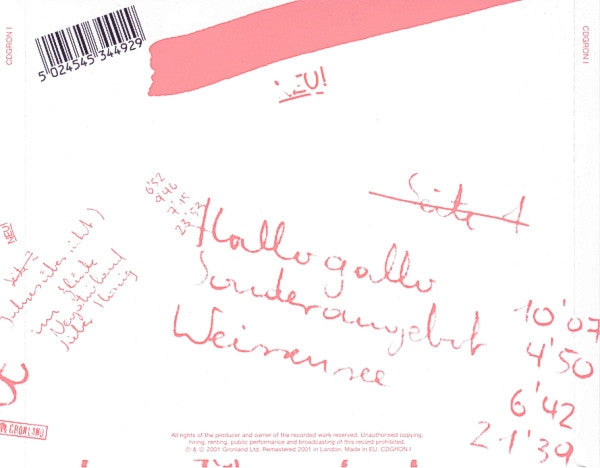 CDGRON I
5 024545 344929
NEU!
CDGRON I
Seite 1
6'52
9'46
7'15
23'53
Hallogallo
Sonderangebot
Weissensee
10'07
4'50
6'42
21'39
NEU!
Seite 2
im Glück
Negativland
Lieber Honig
GRÖNLAND
All rights of the producer and owner of the recorded work reserved. Unauthorised copying,
hiring, renting, public performance and broadcasting of this record prohibited.
℗ & © 2001 Gronland Ltd. Remastered 2001 in London. Made in EU. CDGRON I